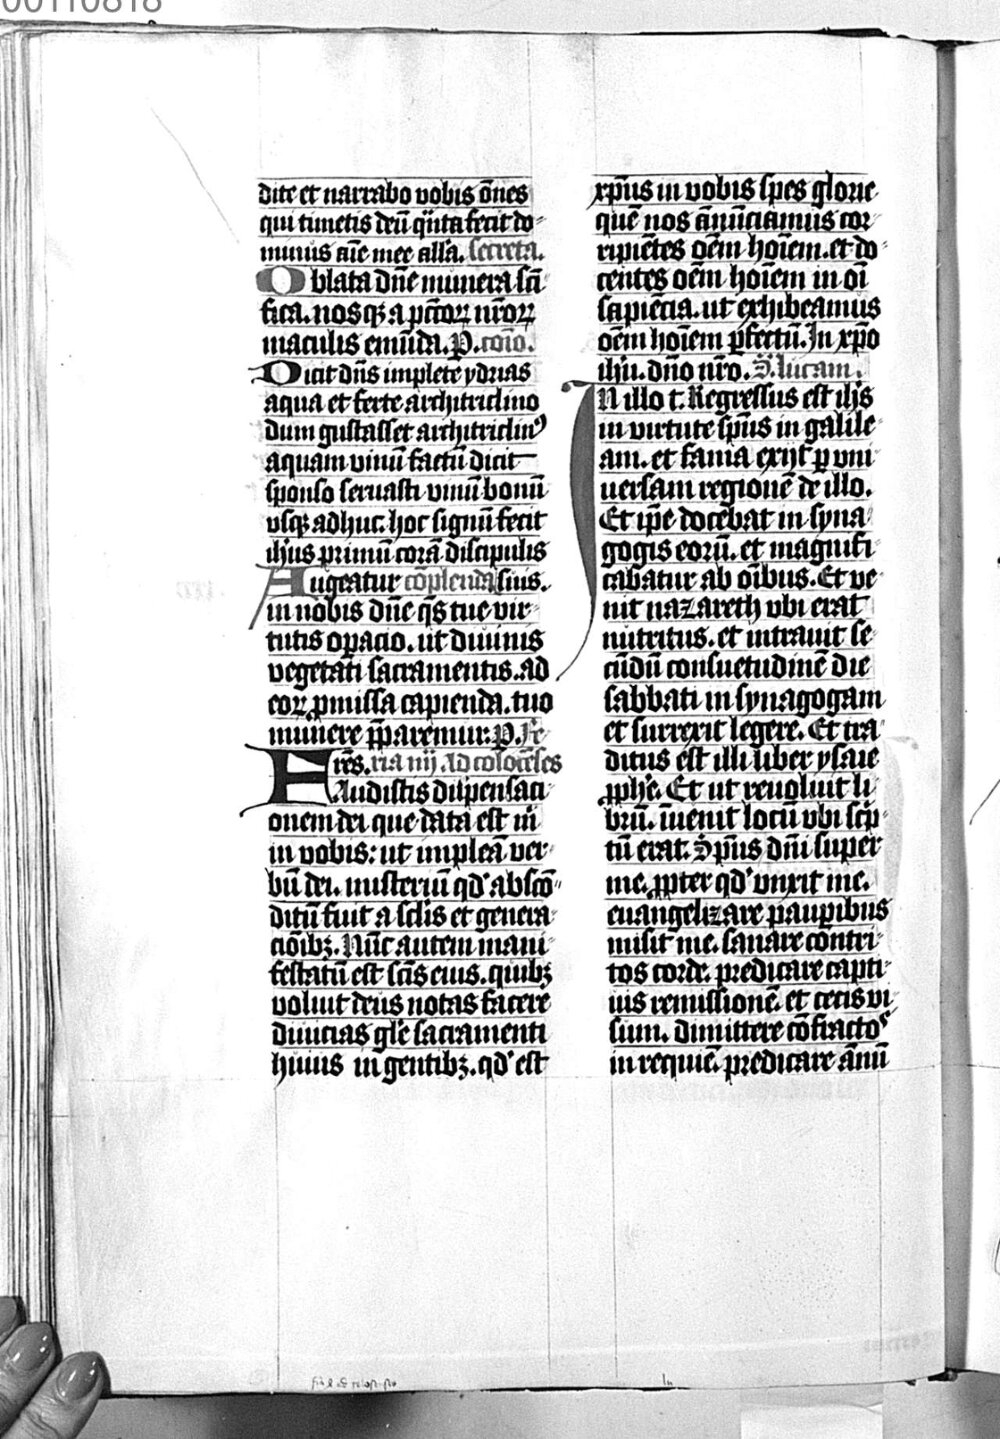 dite et narrabo vobis om̄es
qui timetis deū qūta fecit do-
minus aīe mee allā. secreta.
Oblata dn̄e munera sc̄i
fica. nosqꝫ a pctōꝝ nr̄oꝝ
maculis emūda. P. com̄o.
Dicit dn̄s implete ydrias
aqua et ferte architriclino
dum gustasset architriclinꝰ
aquam vinū factū dicit
sponso seruasti vinū bonū
vsqꝫ adhuc. hoc signū fecit
ih̄us primū corā discipulis
Augeatur cōplenda suis.
in nobis dn̄e qs̄ tue vir-
tutis opacio. ut diuinis
vegetati sacramentis. ad
eoꝝ pmissa capienda. tuo
munere p̄paremur. P. Fe-
Fr̄es. ria iiij. Ad colocēses
Audistis dispensaci-
onem dei que data est m̄
in vobis: ut impleā ver-
bū dei. misteriū qd' abscō-
ditū fuit a sclīs et genera-
ciōibꝫ. Nūc autem mani-
festatū est sc̄is eius. quibꝫ
voluit deus notas facere
diuicias gl̄e sacramenti
huius in gentibꝫ. qd' est
xp̄us in vobis spes glorie
quē nos an̄ūciamus cor-
ripiētes oēm hoīem. et do-
centes oēm hoīem in oī
sapiēcia. ut exhibeamus
oēm hoīem pfectū. In xp̄o
ih̄u. dn̄o nr̄o. S. lucam.
IN illo t. Regressus est ih̄s
in virtute sp̄us in galile-
am. et fama exijt p vni-
uersam regionē de illo.
Et ip̄e docebat in syna-
gogis eorū. et magnifi-
cabatur ab oībus. Et ve-
nit nazareth vbi erat
nutritus. et intrauit se-
cūdū consuetudinē die
sabbati in synagogam
et surrexit legere. Et tra-
ditus est illi liber ysaie
pph̄e. Et ut reuoluit li-
brū. īuenit locū vbi scp̄-
tū erat. Sp̄us dn̄i super
me. ppter qd' vnxit me.
euangelizare paupibus
misit me. sanare contri-
tos corde. predicare capti-
uis remissionē. et cecis vi-
sum. dimittere cōfractoˢ
in requiē. predicare ann̄ū